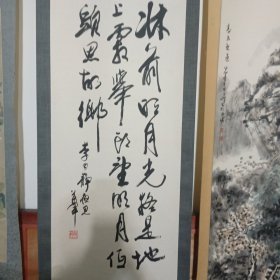 牀前明月光疑是地
上霜舉頭望明月低
頭思故鄉
李白靜夜思